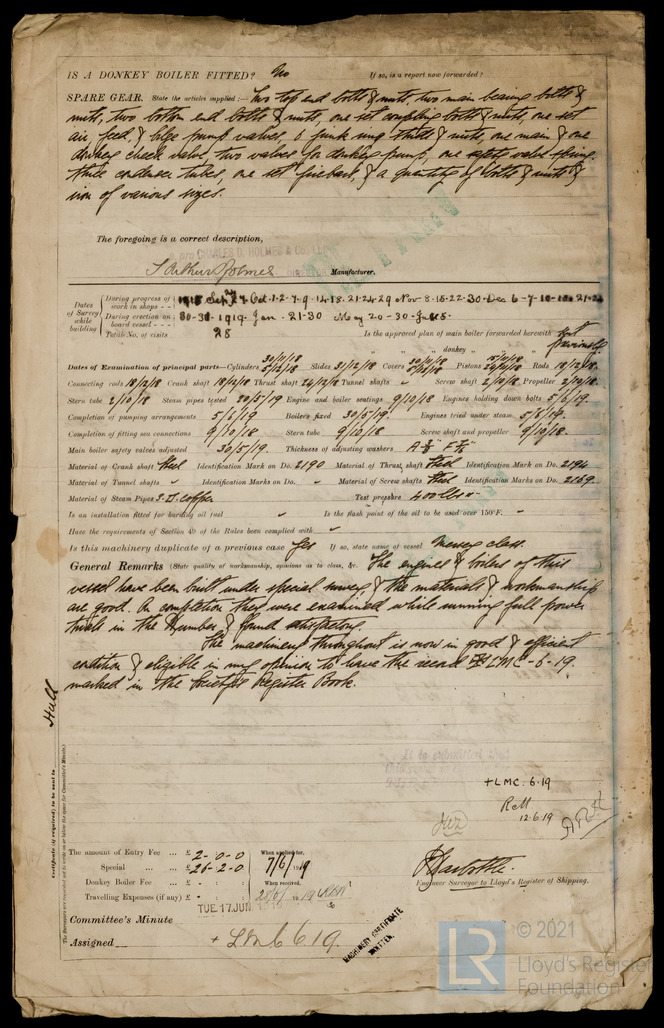 IS A DONKEY BOILER FITTED? No If so, is a report now forwarded?
SPARE GEAR. State the articles supplied:— Two top end bolts & nuts, two main bearing bolts &
nuts, two bottom end bolts & nuts, one set coupling bolts & nuts, one set
air feed, & bilge pump valves, 6 junk ring studs & nuts, one main & one
donkey check valve, two valves for donkey pump, one safety valve spring.
three condenser tubes, one set firebars, & a quantity of bolts & nuts &
iron of various sizes.
The foregoing is a correct description,
pro CHARLES D. HOLMES & Co. LTD
Arthur Holmes Manufacturer.
Dates of Survey while building
During progress of work in shops - - 1918 Sep. Oct. 1-2-7-9-14-18-21-24-29 Nov-8-15-22-30-Dec 6-7-10
During erection on board vessel - - - 30-31-1919-Jan-21-30 May 20-30-June 5.
Total No. of visits 28 Is the approved plan of main boiler forwarded herewith
" " " donkey " "
Dates of Examination of principal parts—Cylinders 30/11/18 5/12/18 Slides 31/12/18 Covers Pistons Rods 18/12/18
Connecting rods 18/2/18 Crank shaft 18/2/18 Thrust shaft 24/12/18 Tunnel shafts " Screw shaft 2/10/18 Propeller 2/10/18.
Stern tube 2/10/18 Steam pipes tested 20/5/19 Engine and boiler seatings 9/10/18 Engines holding down bolts 5/6/19.
Completion of pumping arrangements 5/6/19 Boilers fixed 30/5/19. Engines tried under steam 5/6/19.
Completion of fitting sea connections 9/10/18 Stern tube 9/10/18 Screw shaft and propeller 9/10/18.
Main boiler safety valves adjusted 30/5/19. Thickness of adjusting washers
Material of Crank shaft Steel Identification Mark on Do. 2190 Material of Thrust shaft Steel Identification Mark on Do. 2194
Material of Tunnel shafts " Identification Marks on Do. " Material of Screw shafts Steel Identification Marks on Do. 2169.
Material of Steam Pipes S.D. Copper Test pressure 400 lbs
Is an installation fitted for burning oil fuel " Is the flash point of the oil to be used over 150°F. "
Have the requirements of Section 49 of the Rules been complied with "
Is this machinery duplicate of a previous case Yes If so, state name of vessel Mersey class.
General Remarks (State quality of workmanship, opinions as to class, &c. The engines & boilers of this
vessel have been built under special survey, & the materials & workmanship
are good. On completion they were examined while running full power
trials in the Humber, & found satisfactory.
The machinery throughout is now in good & efficient
condition & eligible in my opinion to have the record LMC-6-19.
marked in the Society's Register Book.
Hull
Certificate (if required) to be sent to
The Surveyors are requested not to write on or below the space for Committee's Minute.
It is submitted
+LMC. 6.19
12.6.19
The amount of Entry Fee ... £ 2-0-0 When applied for,
Special ... ... £ 26-2-0 7/6/1919
Donkey Boiler Fee ... £ When received,
Travelling Expenses (if any) £
Engineer Surveyor to Lloyd's Register of Shipping.
TUE. 17 JUN. 1919
Committee's Minute
Assigned + LMC 6.19.
MACHINERY CERTIFICATE
WRITTEN.
LR © 2021
Lloyd's Register
Foundation